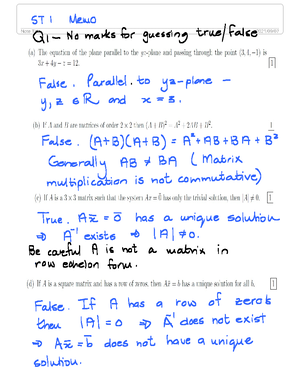 ST 1 Memo
Q1 - No marks for guessing true/false
(a) The equation of the plane parallel to the yz-plane and passing through the point (3,4,-1) is
3x + 4y - z = 12.
[1]
False. Parallel to yz-plane -
y, z ∈ ℝ and x = 3.
(b) If A and B are matrices of order 2 × 2 then (A + B)² = A² + 2AB + B².
1
False. (A+B)(A+B) = A²+AB+BA+B²
Generally AB ≠ BA (Matrix
multiplication is not commutative)
(c) If A is a 3 × 3 matrix such that the system Ax̄ = 0̄ has only the trivial solution, then |A| ≠ 0. [1]
True. Ax̄ = 0̄ has a unique solution
⇒ A⁻¹ exists ⇒ |A| ≠ 0.
Be careful A is not a matrix in
row echelon form.
(d) If A is a square matrix and has a row of zeros, then Ax̄ = b̄ has a unique solution for all b̄. [1]
False. If A has a row of zeros
then |A| = 0 ⇒ A⁻¹ does not exist
⇒ Ax̄ = b̄ does not have a unique
solution.